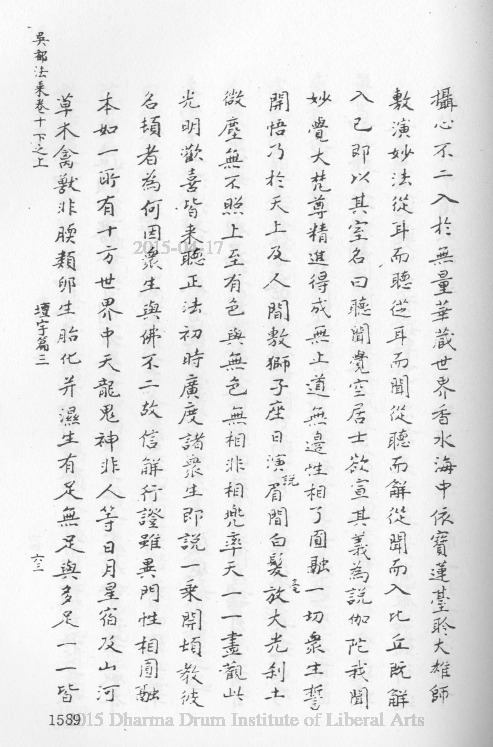 攝心不二入於無量華藏世界香水海中依寶蓮臺聆大雄師
敷演妙法從耳而聽從耳而聞從聽而解從聞而入比丘既解
入已即以其室名曰聽聞覺空居士欲宣其義為說伽陀我聞
妙覺大梵尊精進得成無上道無邊性相了圓融一切衆生誓
開悟乃於天上及人間敷獅子座日演說眉間白髮毫放大光刹土
微塵無不照上至有色與無色無相非相兜率天一一盡觀此
光明歡喜皆来聽正法初時廣度諸衆生即說一乘開頓教彼
名頓者為何因衆生與佛不二故信解行證雖異門性相圓融
本如一所有十方世界中天龍鬼神非人等日月星宿及山河
草木禽獸非膜類卵生胎化并濕生有足無足與多足一一皆
吳都法乘卷十下之上
壇宇篇三
六三
1589
2015-04-17
2015 Dharma Drum Institute of Liberal Arts